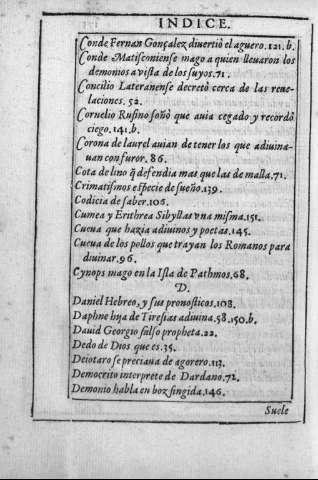 INDICE.
Conde Fernan Gonçalez diuertiò el aguero. 121. b.
Conde Matisconiense mago a quien lleuaron los
demonios a vista de los suyos. 71.
Concilio Lateranense decretò cerca de las reue-
laciones. 52.
Cornelio Rufino soñò que auia cegado y recordò
ciego. 141. b.
Corona de laurel auian de tener los que adiuina-
uan con furor. 86.
Cota de lino q̃ defendia mas que las de malla. 71.
Crimatismos especie de sueño. 139.
Codicia de saber. 106.
Cumea y Erithrea Sibyllas vna misma. 151.
Cueua que hazia adiuinos y poetas. 145.
Cueua de los pollos que trayan los Romanos para
diuinar. 96.
Cynops mago en la Isla de Pathmos. 68.
D.
Daniel Hebreo, y sus pronosticos. 108.
Daphne hija de Tiresias adiuina. 58. 150. b.
Dauid Georgio falso propheta. 22.
Dedo de Dios que es. 35.
Deiotaro se preciaua de agorero. 113.
Democrito interprete de Dardano. 72.
Demonio habla en boz fingida. 146.
Suele